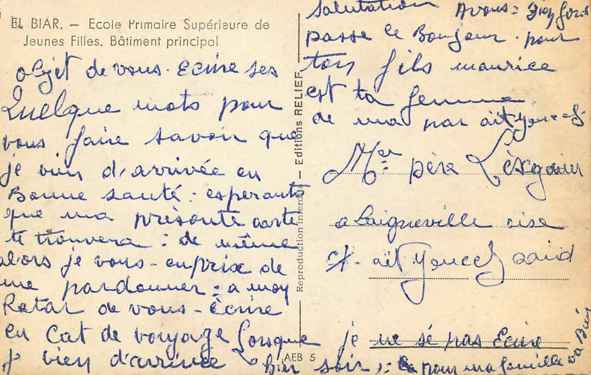 EL BIAR, — Ecole Primaire Supérieure de
Jeunes Filles, Bâtiment principal
objet de vous Ecrire ses
Quelque mots pour
vous faire savoir que
je vien d'arrivée en
Bonne santé : esperants
que ma présente carte
te trouvera : de même
alors je vous en prix de
me pardonner : a moy
Retar de vous Écrire
en Cat de voyage Lorsque
j vien d'arrivée
hier soir :
je ne sé pas Ecrire
pour ma famille va Bien
Salutation Avous
passe le Bonjour pour
ton fils maurice
est ta femme
de ma par ait youcef
Mer père
a Laigneville oise
ait youcef Said
Reproduction Interdite — Editions RELIEF
AEB 5